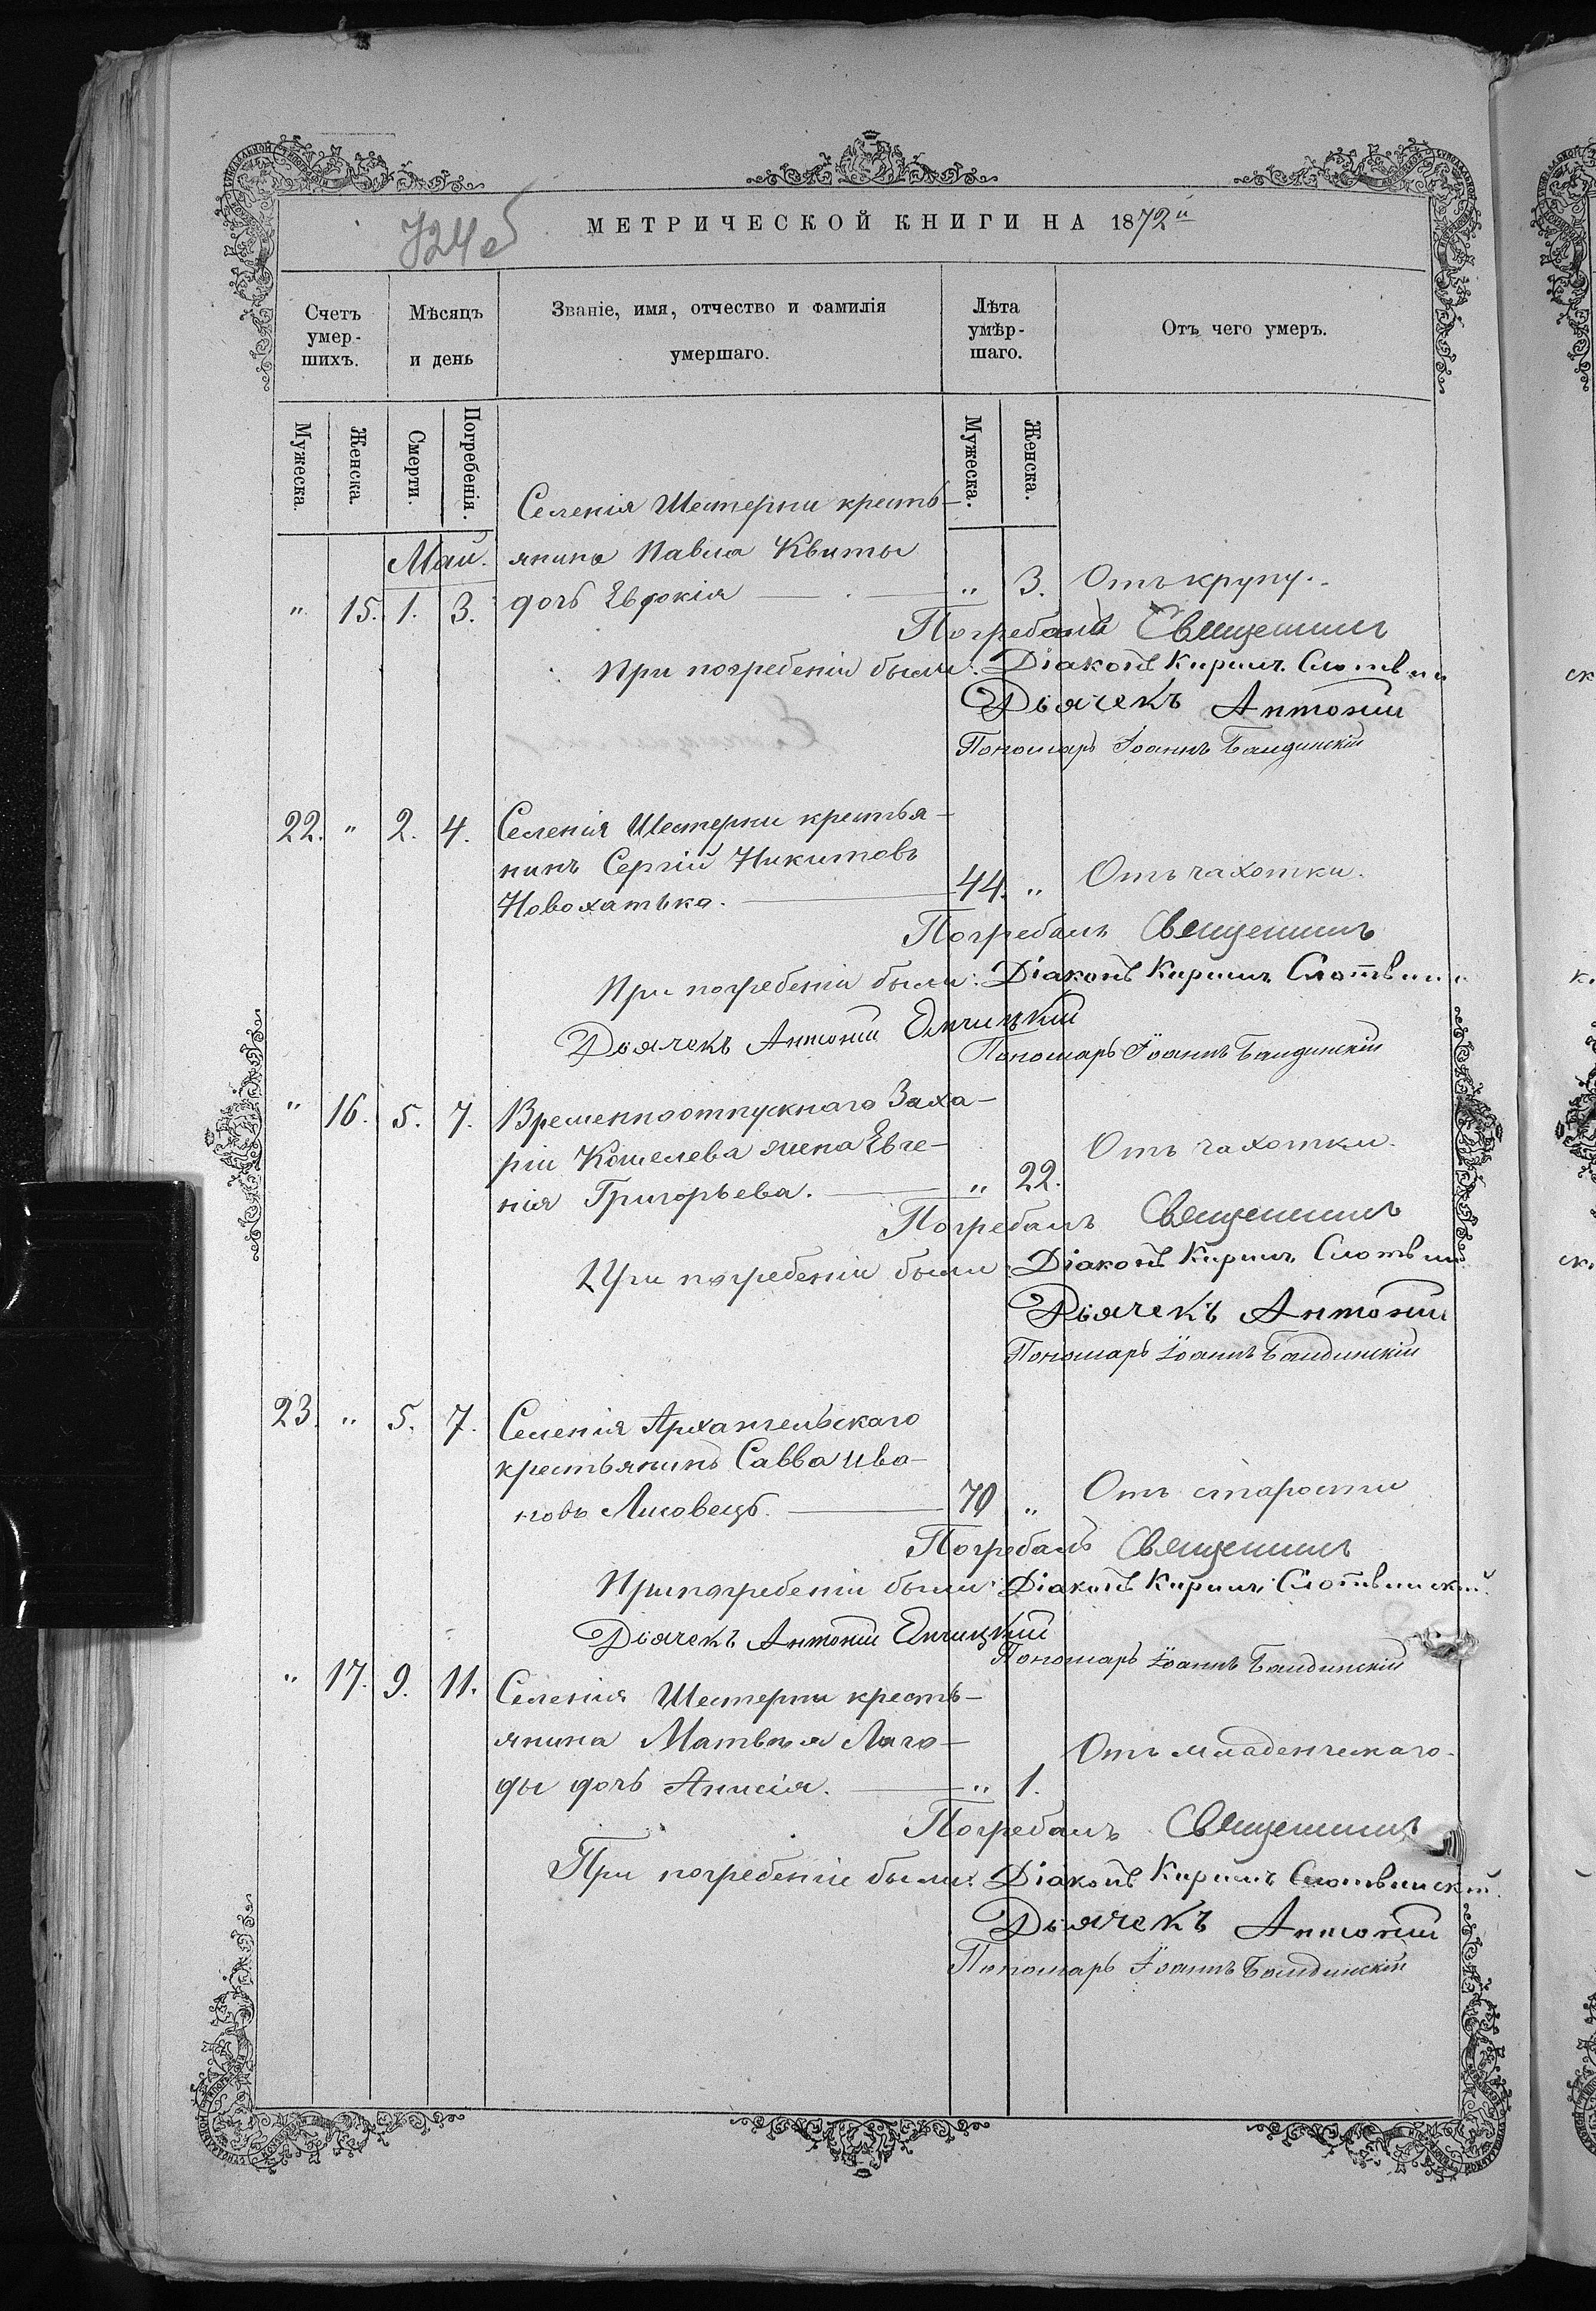 724 об
МЕТРИЧЕСКОЙ КНИГИ НА 1872й
Счетъ умер-шихъ.
Мѣсяцъ и день
Званіе, имя, отчество и фамилія умершаго.
Лѣта умѣр-шаго.
Отъ чего умеръ.
Мужеска.
Женска.
Смерти.
Погребенія.
Мужеска.
Женска.
Май.
Селенія Шестерни кресть-
янина Павла Квиты
" 15. 1. 3. дочь Евдокія " 3. Отъ крупу.
Погребалъ Священникъ
При погребеніи были: Діаконъ Кирилъ
Дьячекъ Антоній
Пономарь Іоаннъ Бандинскій
22. " 2. 4. Селенія Шестерни крестья-
нинъ Сергій Никитовъ
Новохатько. 44. " Отъ чахотки.
Погребалъ Священникъ
При погребеніи были: Діаконъ Кирилъ
Дьячекъ Антоній
Пономарь Іоаннъ Бандинскій
" 16. 5. 7. Временноотпускнаго Заха-
рія Кошелева жена Евге-
нія Григорьева. " 22. Отъ чахотки.
Погребалъ Священникъ
При погребеніи были Діаконъ Кирилъ
Дьячекъ Антоній
Пономарь Іоаннъ Бандинскій
23. " 5. 7. Селенія Архангельскаго
крестьянинъ Савва Ива-
новъ Лисовецъ. 70 " Отъ старости
Погребалъ Священникъ
При погребеніи были: Діаконъ Кирилъ Слотвинскій.
Дьячекъ Антоній
Пономарь Іоаннъ Бандинскій
" 17. 9. 11. Селенія Шестерни кресть-
янина Матвѣя Ляго-
ды дочь Анисія. " 1. Отъ младенческаго.
Погребалъ Священникъ
При погребеніи были: Діаконъ Кирилъ Слотвинскій.
Дьячекъ Антоній
Пономарь Іоаннъ Бандинскій